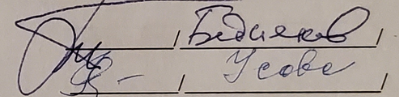 / Бедняков /
/ Усова /